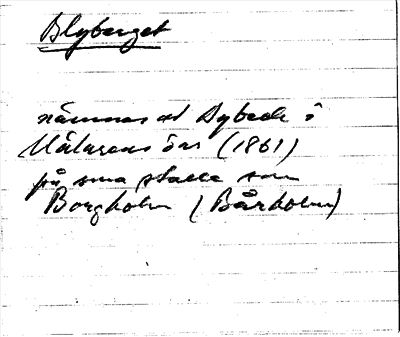 Blyberget
nämnes af Dybeck i
Mälarens öar (1861)
på sma stalle som
Borgholm (Bårholm)